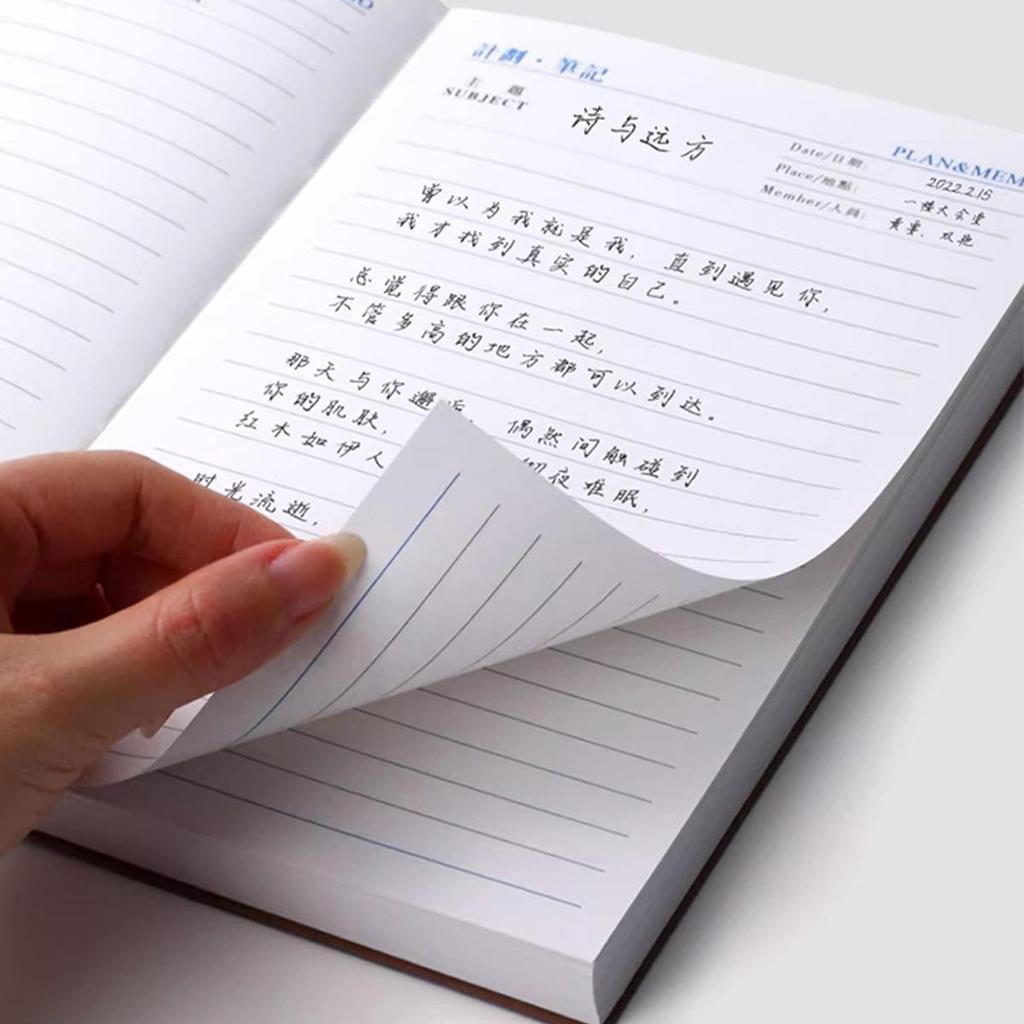 計劃·筆記
PLAN&MEM
主 題
SUBJECT
诗与远方
Date/日期: 2022.2.15
Place/地點: 一楼大会堂
Member/人員:
曾以为我就是我，直到遇见你，
我才找到真实的自己。
总觉得跟你在一起，
不管多高的地方都可以到达。
那天与你邂逅，偶然间触碰到
你的肌肤，彻夜难眠，
红木如伊人
时光流逝，